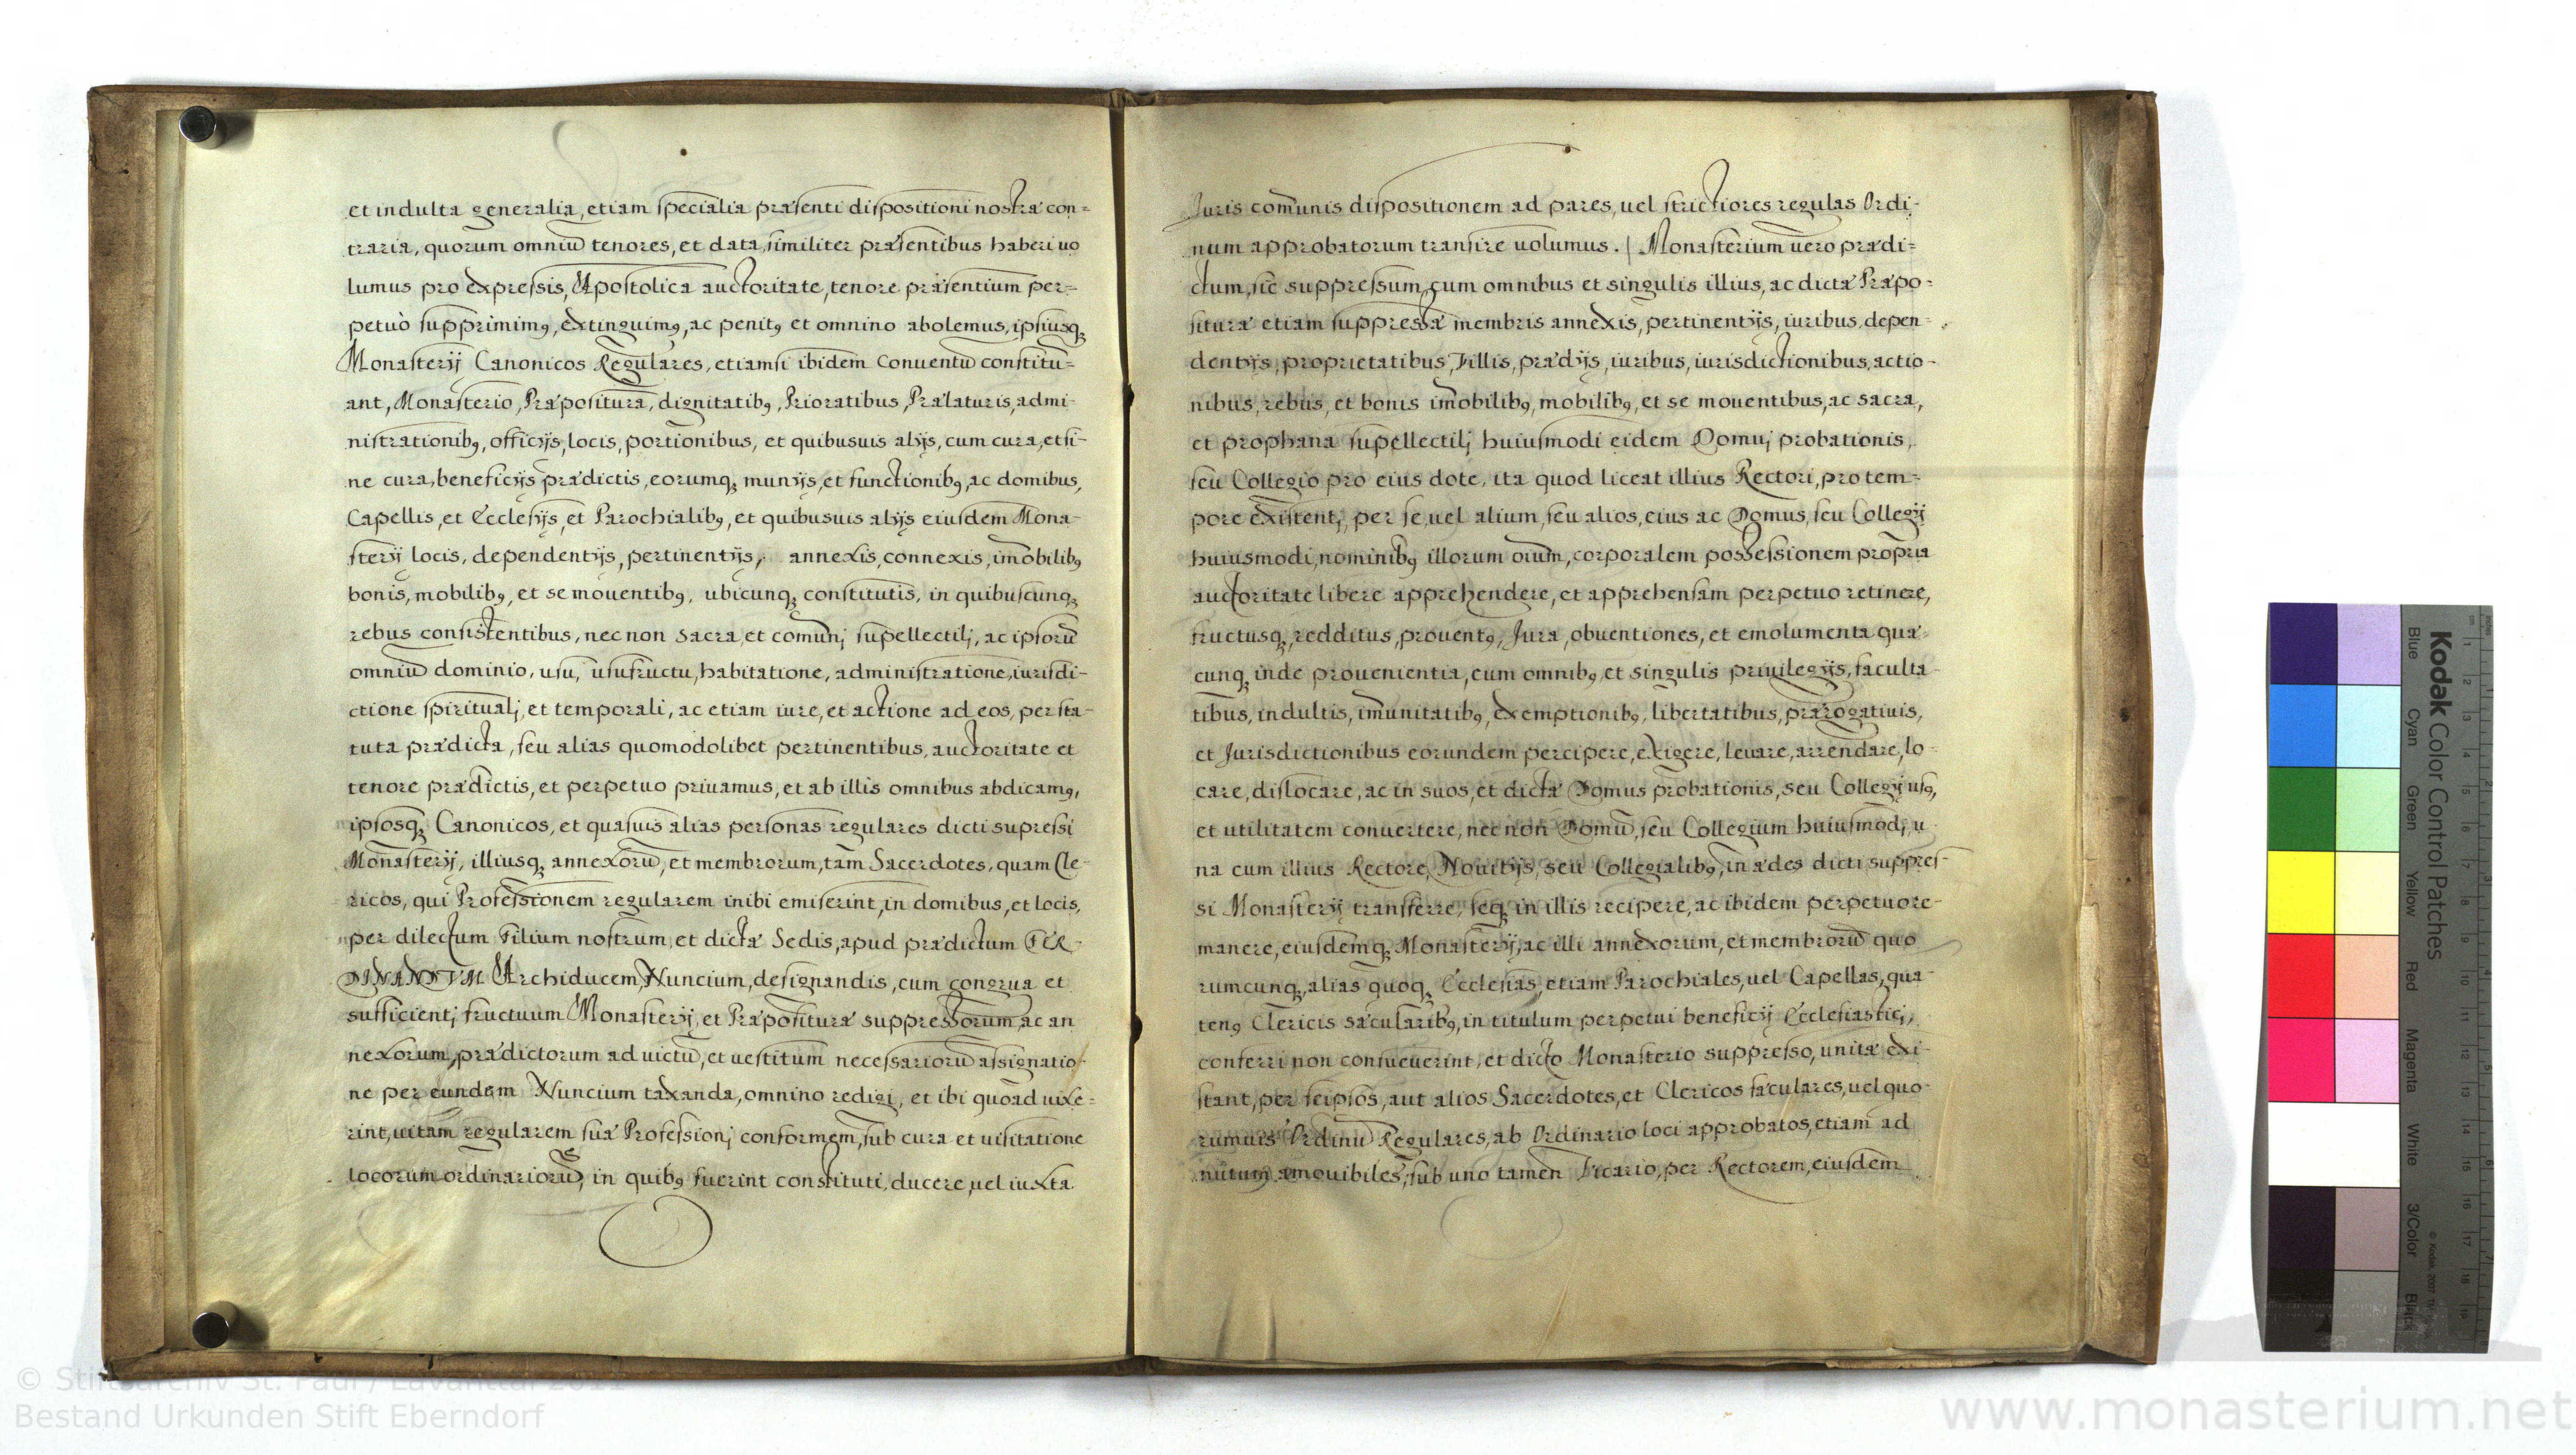 et indulta generalia, etiam specialia præsenti dispositioni nostræ con=
traria, quorum omniū tenores, et data, similiter præsentibus haberi uo
lumus pro expressis, Apostolica auctoritate, tenore præsentium per=
petuò supprimimꝰ, extinguimꝰ, ac penitꝰ et omnino abolemus, ipsiusq;
Monasterij Canonicos Regulares, etiamsi ibidem Conuentū constitu=
ant, Monasterio, Præpositura, dignitatibꝰ, Prioratibus, Prælaturis, admi-
nistrationibꝰ, officijs, locis, portionibus, et quibusuis alijs, cum cura, et si-
ne cura, beneficijs prædictis, eorumq; munijs, et functionibꝰ, ac domibus,
Capellis, et Ecclesijs, et Parochialibꝰ, et quibusuis alijs eiusdem Mona-
sterij locis, dependentijs, pertinentijs, annexis, connexis, im̄obilibꝰ
bonis, mobilibꝰ, et se mouentibꝰ, ubicunq; constitutis, in quibuscunq;
rebus consistentibus, nec non sacra, et comunj supellectilj, ac ipsorū
omniū dominio, usu, usufructu, habitatione, administratione, iurisdi-
ctione spiritualj, et temporali, ac etiam iure, et actione ad eos, per sta-
tuta prædicta, seu alias quomodolibet pertinentibus, auctoritate et
tenore prædictis, et perpetuo priuamus, et ab illis omnibus abdicamꝰ,
ipsosq; Canonicos, et quasuis alias personas regulares dicti supressi
Monasterij, illiusq; annexorū, et membrorum, tam Sacerdotes, quam Cle-
ricos, qui Professionem regularem inibi emiserint, in domibus, et locis,
per dilectum Filium nostrum, et dictæ Sedis, apud prædictum FER-
DINANDVM Archiducem, Nuncium, designandis, cum congrua et
sufficientj fructuum Monasterij, et Præposituræ suppressorum, ac an
nexorum, prædictorum ad uictū, et uestitum necessariorū assignatio-
ne per eundem Nuncium taxanda, omnino redigi, et ibi quoad uixe=
rint, uitam regularem suæ Professionj conformem, sub cura et uisitatione
locorum ordinariorū, in quibꝰ fuerint constituti, ducere, uel iuxta
Juris com̄unis dispositionem ad pares, uel strictiores regulas Ordi-
num approbatorum transire uolumus. | Monasterium uero prædi=
ctum, sic suppressum, cum omnibus et singulis illius, ac dictæ Præpo=
situræ etiam suppressæ membris annexis, pertinentijs, iuribus, depen=
dentijs, proprietatibus, Villis, prædijs, iuribus, iurisdictionibus, actio-
nibus, rebus, et bonis im̄obilibꝰ, mobilibꝰ, et se mouentibus, ac sacra,
et prophana supellectilj huiusmodi eidem Domuj probationis,
seu Collegio pro eius dote, ita quod liceat illius Rectori, pro tem=
pore existentj, per se, uel alium, seu alios, eius ac Domus, seu Collegij
huiusmodi, nominibꝰ illorum oium, corporalem possessionem propria
auctoritate libere apprehendere, et apprehensam perpetuo retinere,
fructusq; redditus, prouentꝰ, Jura, obuentiones, et emolumenta quæ-
cunq; inde prouenientia, cum omnibꝰ, et singulis priuilegijs, faculta-
tibus, indultis, im̄unitatibꝰ, exemptionibꝰ, libertatibus, prærogatiuis,
et Jurisdictionibus eorundem percipere, exigere, leuare, arrendare, lo-
care, dislocare, ac in suos, et dictæ Domus probationis, seu Collegij usꝰ,
et utilitatem conuertere, nec non Domū, seu Collegium huiusmodj u
na cum illius Rectore, Nouitijs, seu Collegialibꝰ, in ædes dicti suppres-
si Monasterij transferre, seq; in illis recipere, ac ibidem perpetuo re-
manere, eiusdemq; Monasterij, ac illi annexorum, et membrorū quo
rumcunq; alias quoq; Ecclesias, etiam Parochiales, uel Capellas, qua-
tenꝰ Clericis sæcularibꝰ, in titulum perpetui beneficij Ecclesiasticj,
conferri non consueuerint, et dicto Monasterio suppresso, unitæ exi-
stant, per seipsos, aut alios Sacerdotes, et Clericos sæculares, uel quo-
rumuis Ordinū Regulares, ab Ordinario loci approbatos, etiam ad
nutum amouibiles, sub uno tamen Vicario, per Rectorem, eiusdem
© Stiftsarchiv St. Paul / Lavanttal 2011
Bestand Urkunden Stift Eberndorf
www.monasterium.net
Kodak Color Control Patches
Blue
Cyan
Green
Yellow
Red
Magenta
White
3/Color
Black